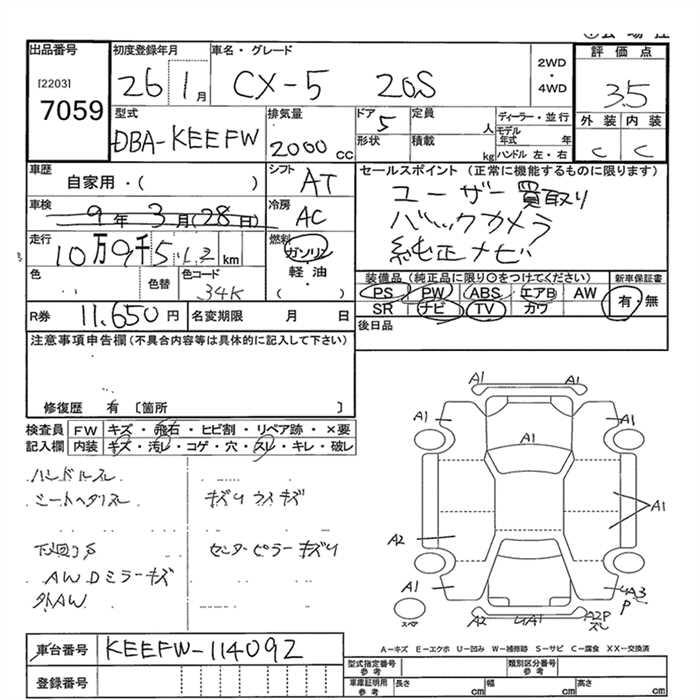 出品番号 初度登録年月 車名・グレード 2WD・4WD 評価点
[2203]
7059
26 1月 CX-5 20S 3.5
型式 排気量 ドア 定員 人 ディーラー・並行 外装 内装
DBA-KEEFW 2000cc 5 形状 積載 kg モデル年式 年 ハンドル 左・右 C C
車歴 シフト セールスポイント(正常に機能するものに限ります)
自家用・( ) AT ユーザー買取り
車検 冷房 バックカメラ
9年3月(28日) AC 純正ナビ
走行 燃料
10万9千5 km ガソリン
色 色替 色コード 軽油 装備品(純正品に限り○をつけてください) 新車保証書
34K ( ) PS PW ABS エアB AW 有・無
SR ナビ TV カワ
R券 11,650円 名変期限 月 日 後日品
注意事項申告欄(不具合内容等は具体的に記入して下さい)
修復歴 有 〔箇所 〕
検査員 FW キズ・飛石・ヒビ割・リペア跡・×要
記入欄 内装 キズ・汚レ・コゲ・穴・スレ・キレ・破レ
ハンドルスレ
シートヘタリスレ キズリ
下回コS センターピラーキズリ
AWDミラーキズ
外AW
A1 A1
A1 A1
A1
A1
A2
A1 A3
P
A1 A2P
スレ
A-キズ E-エクボ U-凹み W-補修跡 S-サビ C-腐食 XX-交換済
車台番号 KEEFW-114092
登録番号
型式指定番号 参考 類別区分番号 参考
車庫証明用 参考 長さ cm 幅 cm 高さ cm